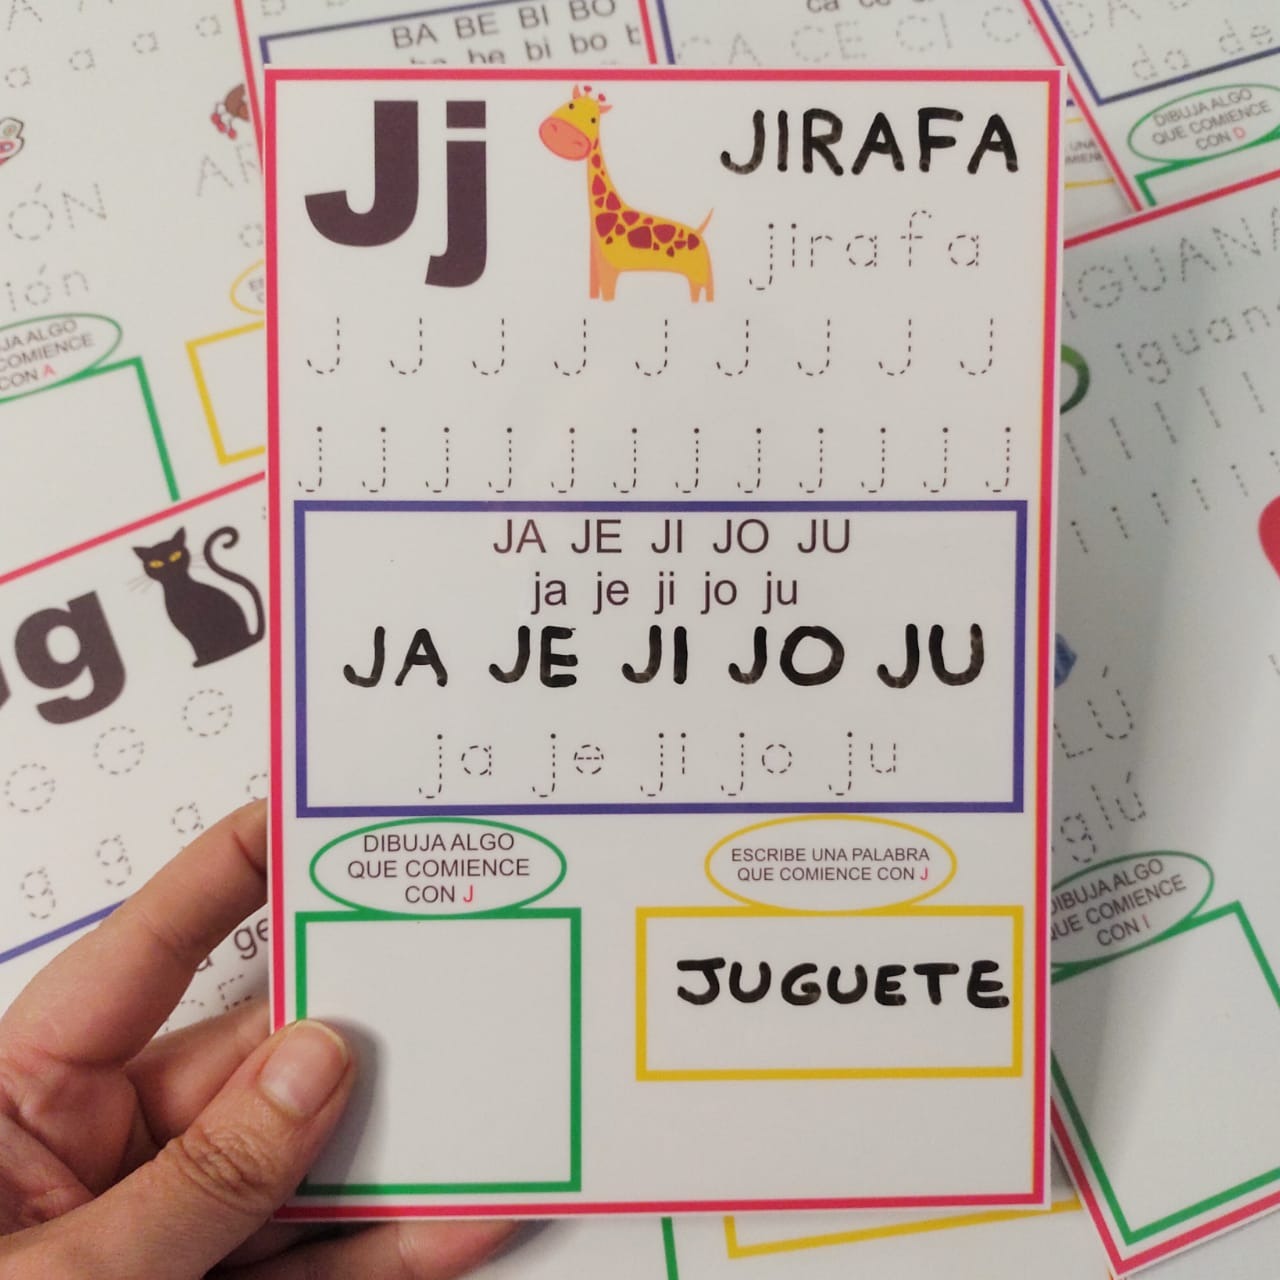 BA BE BI BO
bi bo
DIBUJA ALGO
QUE COMIENCE
CON D
IGUAN
iguan
Jj
JIRAFA
jirafa
J J J J J J J J J
j j j j j j j j j j j j
JA JE JI JO JU
ja je ji jo ju
JA JE JI JO JU
ja je ji jo ju
DIBUJA ALGO
QUE COMIENCE
CON J
ESCRIBE UNA PALABRA
QUE COMIENCE CON J
JUGUETE
COMIENCE
CON A
g
G G G
g g g
DIBUJA ALGO
QUE COMIENCE
CON I